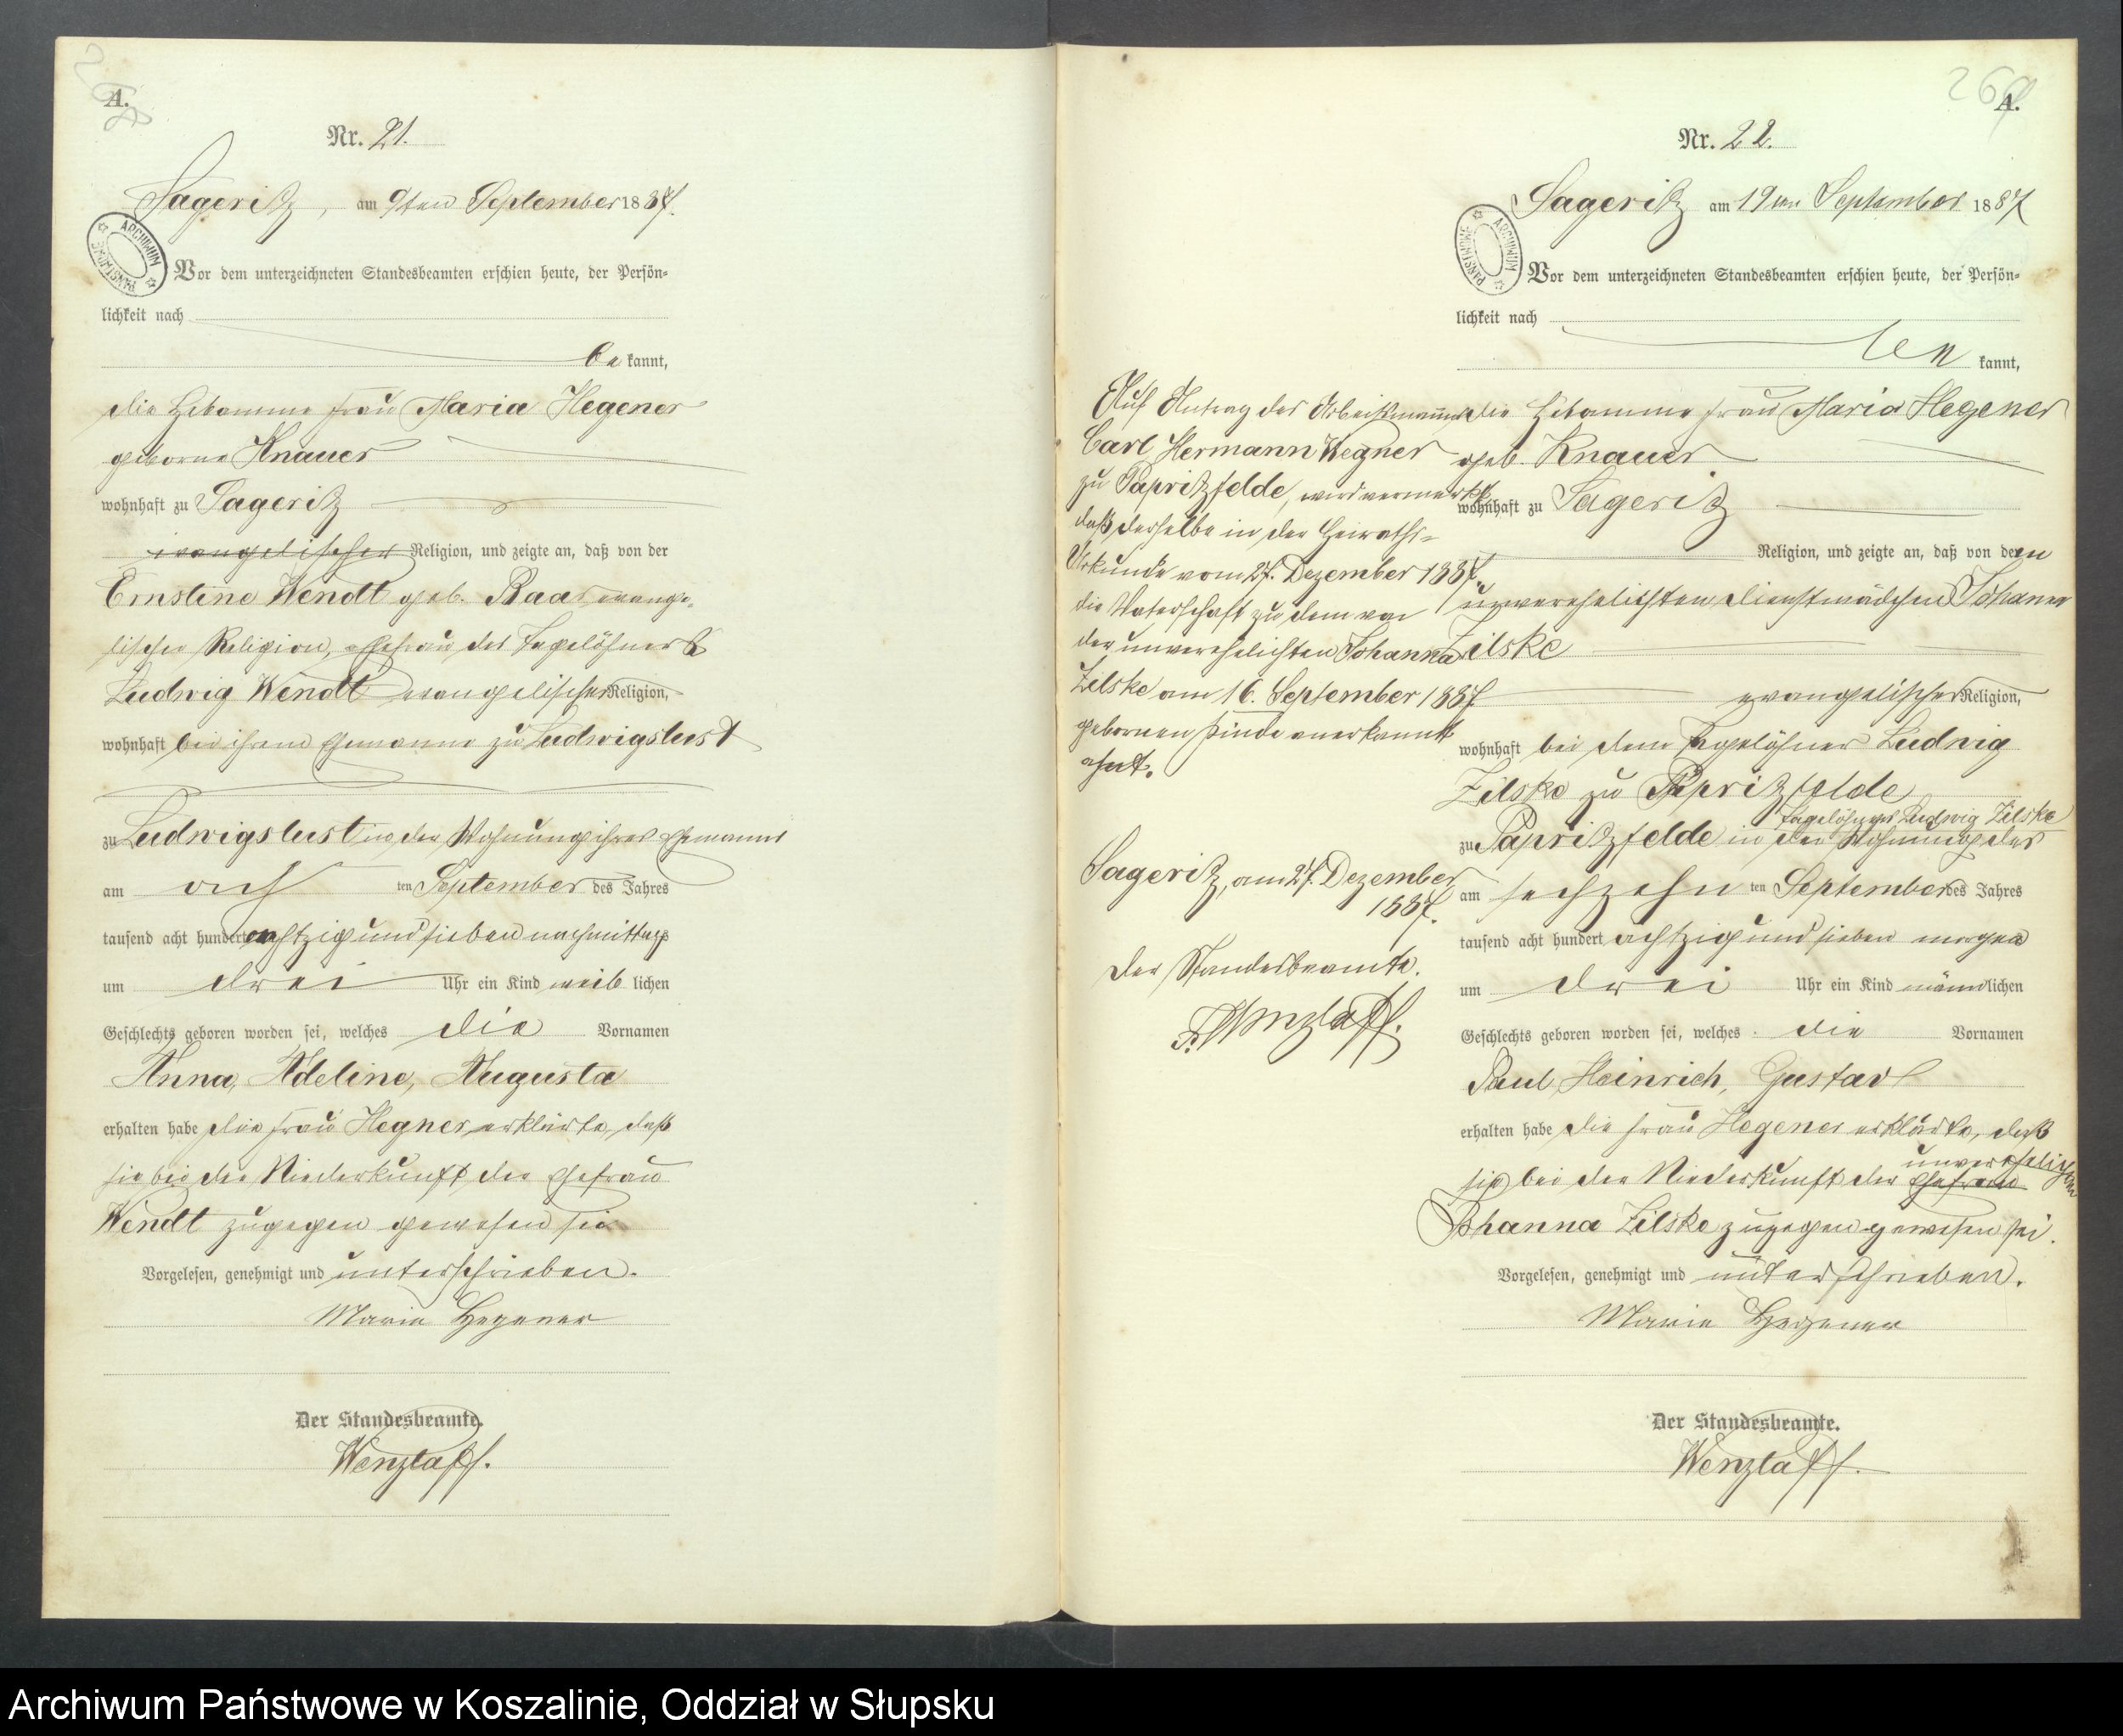 A.
Nr. 21.
Sageritz, am 9ten September 1887.
ARCHIWUM PAŃSTWOWE
Vor dem unterzeichneten Standesbeamten erschien heute, der Persön-
lichkeit nach
be kannt,
die Hebamme Frau Maria Hegener
geborne Knauer
wohnhaft zu Sageritz
evangelischer Religion, und zeigte an, daß von der
Ernstine Wendt geb. Raas evange-
lischer Religion, Ehefrau des Tagelöhners
Ludwig Wendt evangelischer Religion,
wohnhaft bei ihrem Ehemanne zu Ludwigslust
zu Ludwigslust in der Wohnung ihres Ehemannes
am acht ten September des Jahres
tausend acht hundert achtzig und sieben nachmittags
um drei Uhr ein Kind weib lichen
Geschlechts geboren worden sei, welches die Vornamen
Anna, Adeline, Augusta
erhalten habe die Frau Hegner erklärte, daß
sie bei der Niederkunft der Ehefrau
Wendt zugegen gewesen sei
Vorgelesen, genehmigt und unterschrieben.
Marie Hegener
Der Standesbeamte.
Wenzlaff.
269
A.
Nr. 22.
Sageritz am 19ten September 1887
ARCHIWUM PAŃSTWOWE
Vor dem unterzeichneten Standesbeamten erschien heute, der Persön-
lichkeit nach
kannt,
die Hebamme Frau Maria Hegener
geb. Knauer
wohnhaft zu Sageritz
Religion, und zeigte an, daß von der
unverehelichten Dienstmädchen Johanna
Zilske
evangelischer Religion,
wohnhaft bei dem Tagelöhner Ludwig
Zilske zu Papritzfelde
Tagelöhners Ludwig Zilske
zu Papritzfelde in der Wohnung des
am sechzehn ten September des Jahres
tausend acht hundert achtzig und sieben morgens
um drei Uhr ein Kind männlichen
Geschlechts geboren worden sei, welches die Vornamen
Paul, Heinrich, Gustav
erhalten habe die Frau Hegener erklärte, daß
unverehelichten
sie bei der Niederkunft der Ehefrau
Johanna Zilske zugegen gewesen sei.
Vorgelesen, genehmigt und unterschrieben.
Marie Hegener
Der Standesbeamte.
Wenzlaff.
Auf Antrag des Arbeitsmanns
Carl Hermann Wegner
zu Papritzfelde, wird vermerkt,
daß derselbe in der Heiraths-
Urkunde vom 27. Dezember 1887
die Vaterschaft zu dem von
der unverehelichten Johanna
Zilske am 16. September 1887
gebornen Kinde anerkannt
hat.
Sageritz, am 27. Dezember
1887.
Der Standesbeamte.
Wenzlaff.
Archiwum Państwowe w Koszalinie, Oddział w Słupsku